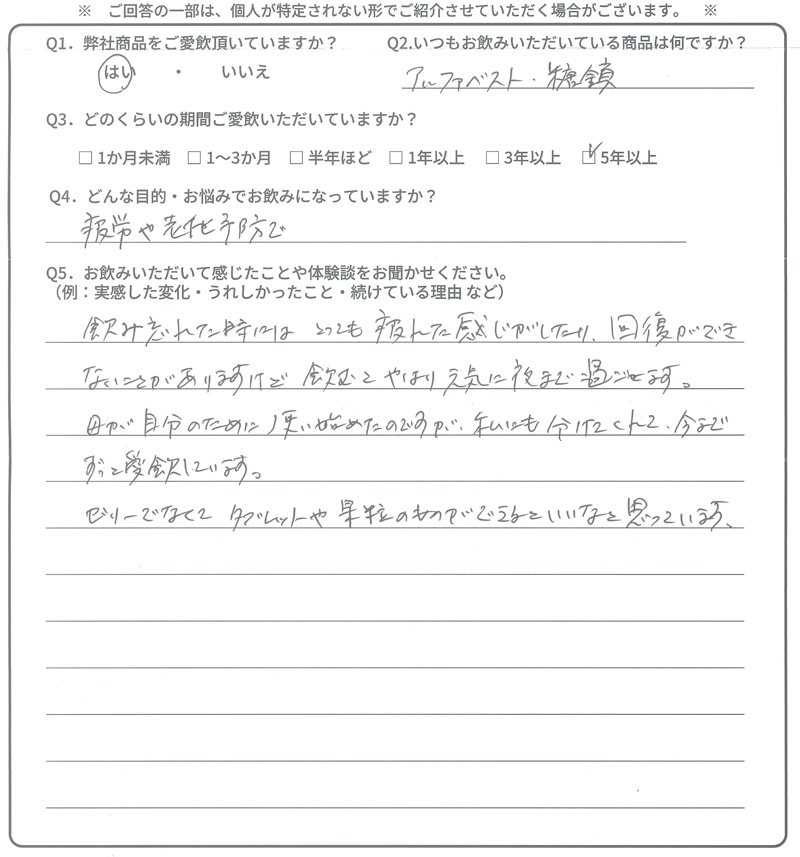 ※ ご回答の一部は、個人が特定されない形でご紹介させていただく場合がございます。 ※
Q1. 弊社商品をご愛飲頂いていますか？ Q2.いつもお飲みいただいている商品は何ですか？
はい ・ いいえ アルファベスト・糖鎖
Q3. どのくらいの期間ご愛飲いただいていますか？
□ 1か月未満 □ 1～3か月 □ 半年ほど □ 1年以上 □ 3年以上 ☑ 5年以上
Q4. どんな目的・お悩みでお飲みになっていますか？
疲労や老化予防で
Q5. お飲みいただいて感じたことや体験談をお聞かせください。
（例：実感した変化・うれしかったこと・続けている理由 など）
飲み忘れた時には とっても 疲れた感じがしたり、回復ができ
ないことがありますけど 飲むと やはり 元気に夜まで過ごせます。
母が自分のために 使い始めたのですが、私にも 分けてくれて、今まで
ずっと愛飲しています。
ゼリーでなくて タブレットや 顆粒のものができるといいなと思っています、